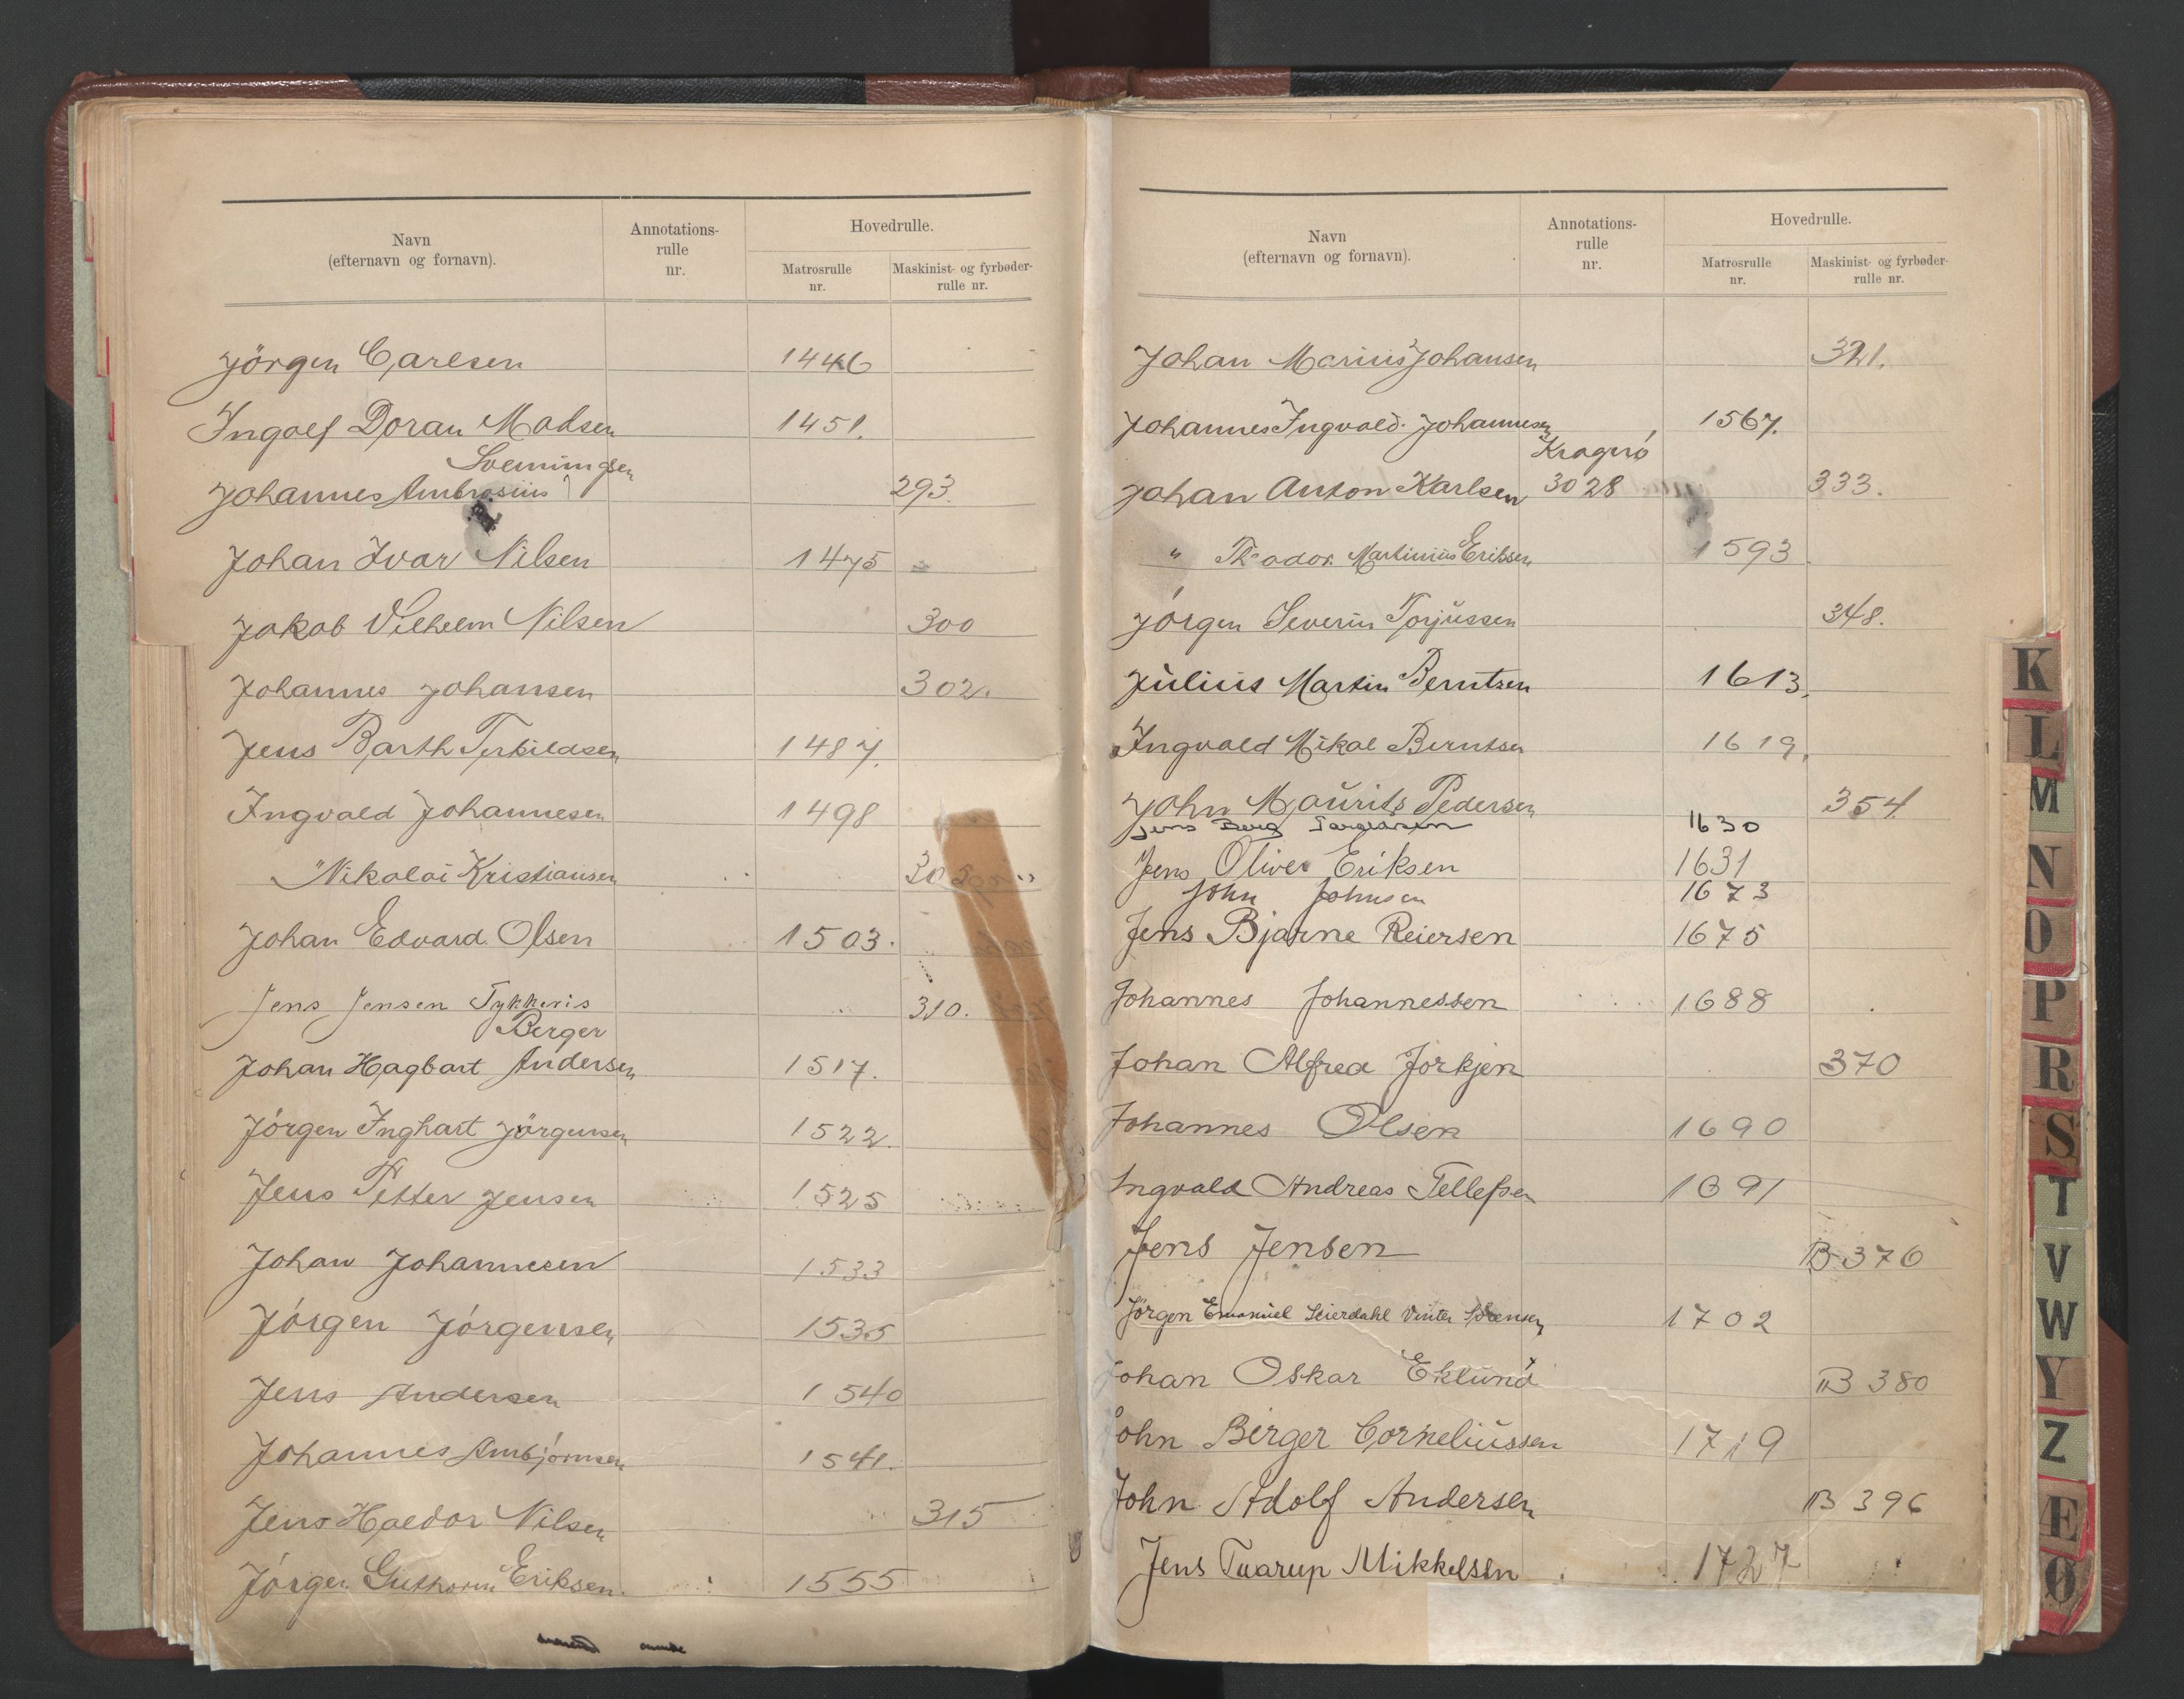 Navn
(efternavn og fornavn).
Annotations-
rulle
nr.
Hovedrulle.
Matrosrulle
nr.
Maskinist- og fyrbøder-
rulle nr.
Jörgen Carlsen 1446
Ingolf Doran Madsen 1451.
Svenningsen
Johannes Ambrosius 293.
Johan Ivar Nilsen 1475
Jakob Vilhelm Nilsen 300
Johannes Johansen 302.
Jens Barth Terkildsen 1487.
Ingvald Johannesen 1498
" Nikolai Kristiansen
Johan Edvard Olsen 1503.
Jens Jensen Tykkeris 310.
Berger
Johan Hagbart Andersen 1517.
Jörgen Inghart Jörgensen 1522.
Jens Petter Jensen 1525
Johan Johannesen 1533
Jörgen Jörgensen 1535
Jens Andersen 1540
Johannes Ambjörnsen 1541.
Jens Haldor Nilsen 315
Jörgen Guthorm Eriksen. 1555
Navn
(efternavn og fornavn).
Annotations-
rulle
nr.
Hovedrulle.
Matrosrulle
nr.
Maskinist- og fyrbøder-
rulle nr.
Johan Marius Johansen 321.
Johannes Ingvald Johannesen 1567.
Kragerö
Johan Anton Karlsen 3028 333.
" Theodor Martinius Eriksen 1593
Jörgen Severin Torjussen 348.
Julius Martin Berntsen 1613.
Ingvald Mikal Berntsen 1619.
John Maurits Pedersen 354
Jens Berg 1630
Jens Oliver Eriksen 1631
John Johnsen 1673
Jens Bjarne Reiersen 1675
Johannes Johannessen 1688
Johan Alfred Jorkjen 370
Johannes Olsen 1690
Ingvald Andreas Tellefsen 1691
Jens Jensen B 376
Jörgen Emanuel Seierdahl Vinter Sörensen 1702
Johan Oskar Eklund B 380
John Birger Corneliussen 1719
John Adolf Andersen B 396
Jens Tvarup Mikkelsen 1727
K
L
M
N
O
P
R
S
T
V
W
Y
Z
Æ
Ø